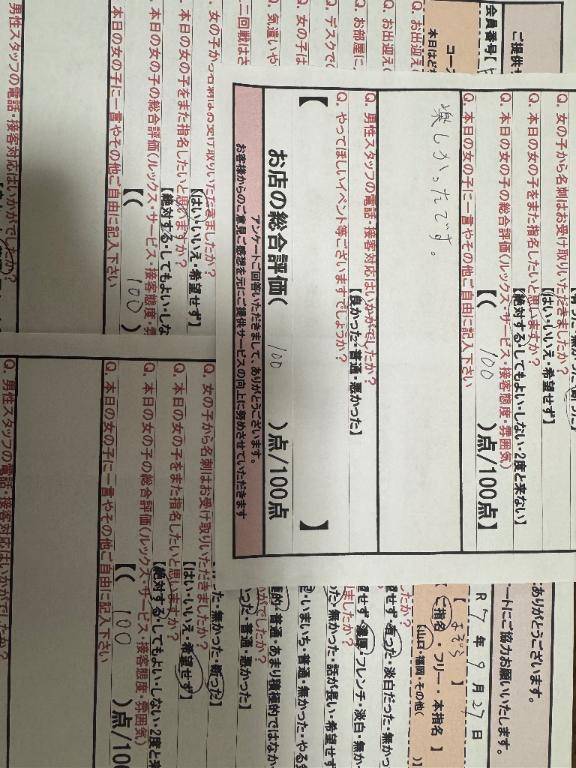 Q. 女の子から名刺はお受け取りいただきましたか?
【はい・いいえ・希望せず】
Q. 本日の女の子をまた指名したいと思いますか?
【絶対する・してもよい・しない・2度と来ない】
Q. 本日の女の子の総合評価(ルックス・サービス・接客態度・雰囲気)
【( 100 )点/100点】
Q. 本日の女の子に一言やその他ご自由に記入下さい
楽しかったです。
Q. 男性スタッフの電話・接客対応はいかがでしたか?
【良かった・普通・悪かった】
Q. やってほしいイベント等ございますでしょうか?
【 】
お店の総合評価( 100 )点/100点
アンケートご回答いただきまして、ありがとうございます。
お客様からのご意見ご感想を元にご提供サービスの向上に努めさせていただきます
ご提供
会員番号【
コース
本日はど
Q. お出迎え
Q. お部屋に
Q. デスクで
Q. 女の子は
Q. 気遣いや
二回戦はさ
女の子から名刺はお受け取りいただきましたか?
【はい・いいえ・希望せず】
本日の女の子をまた指名したいと思いますか?
【絶対する・してもよい・しな
本日の女の子の総合評価(ルックス・サービス・接客態度・雰
【( 100 )
本日の女の子に一言やその他ご自由に記入下さい
男性スタッフの電話・接客対応はいかがでしたか?
ありがとうございます。
ートにご協力お願いいたします。
R 7 年 9 月 27 日
【ご指名・フリー・本指名】
【山口・福岡・その他( )】
った・淡白だった・無か
せず・濃厚・フレンチ・淡白・無か
った・無かった・話が長い・希望せ
・いまいち・普通・無かった・やる
極的・普通・あまり積極的ではなか
った・普通・悪かった】
た・無かった・断った】
Q. 女の子から名刺はお受け取りいただきましたか?
【はい・いいえ・希望せず】
Q. 本日の女の子をまた指名したいと思いますか?
【絶対する・してもよい・しない・2度と来
Q. 本日の女の子の総合評価(ルックス・サービス・接客態度・雰囲気)
【( 100 )点/100
Q. 本日の女の子に一言やその他ご自由に記入下さい
Q. 男性スタッフの電話・接客対応はいかがでしたか?